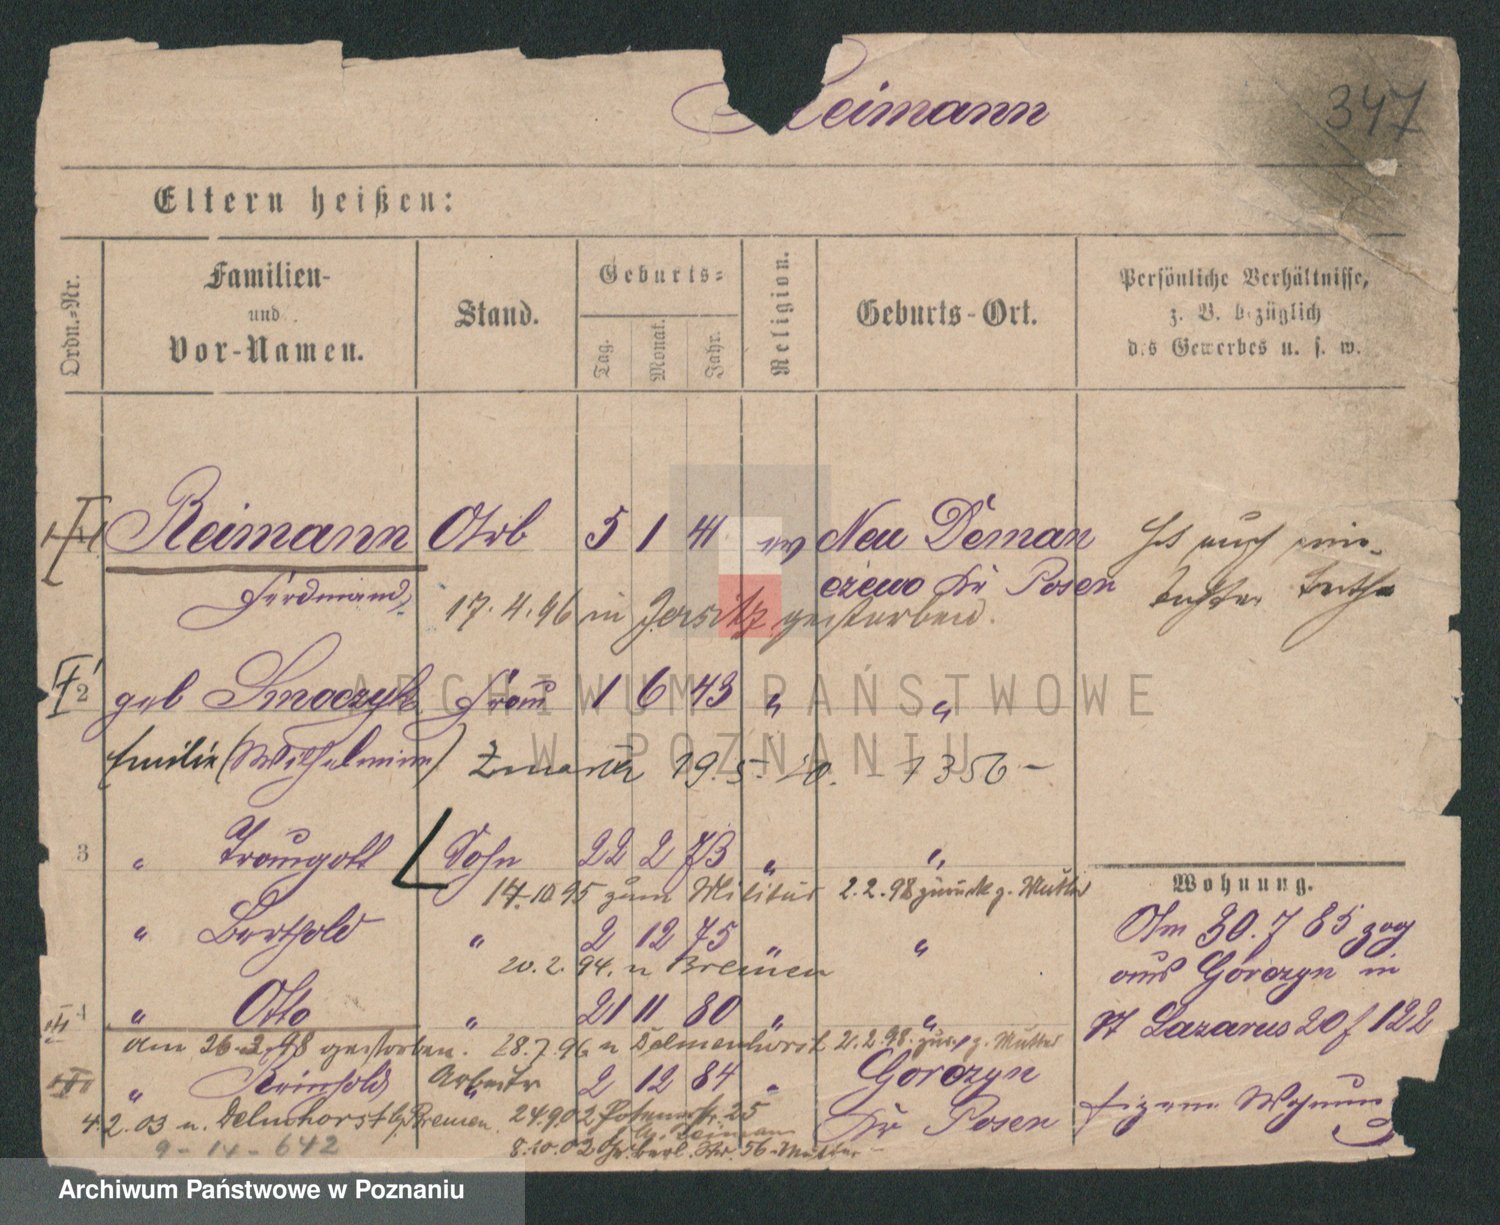 Reimann
347
Eltern heißen:
Ordn.-Nr.
Familien-
und
Vor-Namen.
Stand.
Geburts-
Tag.
Monat.
Jahr.
Religion.
Geburts-Ort.
Persönliche Verhältnisse,
z. B. bezüglich
des Gewerbes u. s. w.
Reimann Arb 5 1 41 ev Neu Deman
czewo Kr Posen
Ferdinand
17. 4. 96 in Jersitz gestorben.
2 geb Smoczyk Frau 1 6 43 " "
Emilie (Wilhelmine) Zmarła 19. 5. 20. 7356 -
3 " Traugott Sohn 22 2 73 " "
14.10.95 zum Militär 2.2.98 zurück z. Mutter
" Berthold " 2 12 75 " "
20. 2. 94. n Bremen
4 " Otto " 21 11 80 " "
am 26.2.98 gestorben. 28.7.96 n Delmenhorst 2.2.98. zur. z. Mutter
" Reinhold Arbeiter 2 12 84 " Gorczyn
Kr Posen
4.2.03 n. Delmhorst b/Bremen. 24.9.02 Posenerstr. 25
8.10.02 Gr. berl. Str. 56 - Mutter -
9 - 14 - 642
Wohnung.
Am 30. 7 85 zog
aus Gorczyn in
St Lazarus 20 f 122
eigene Wohnung
ARCHIWUM PAŃSTWOWE
W POZNANIU
Archiwum Państwowe w Poznaniu